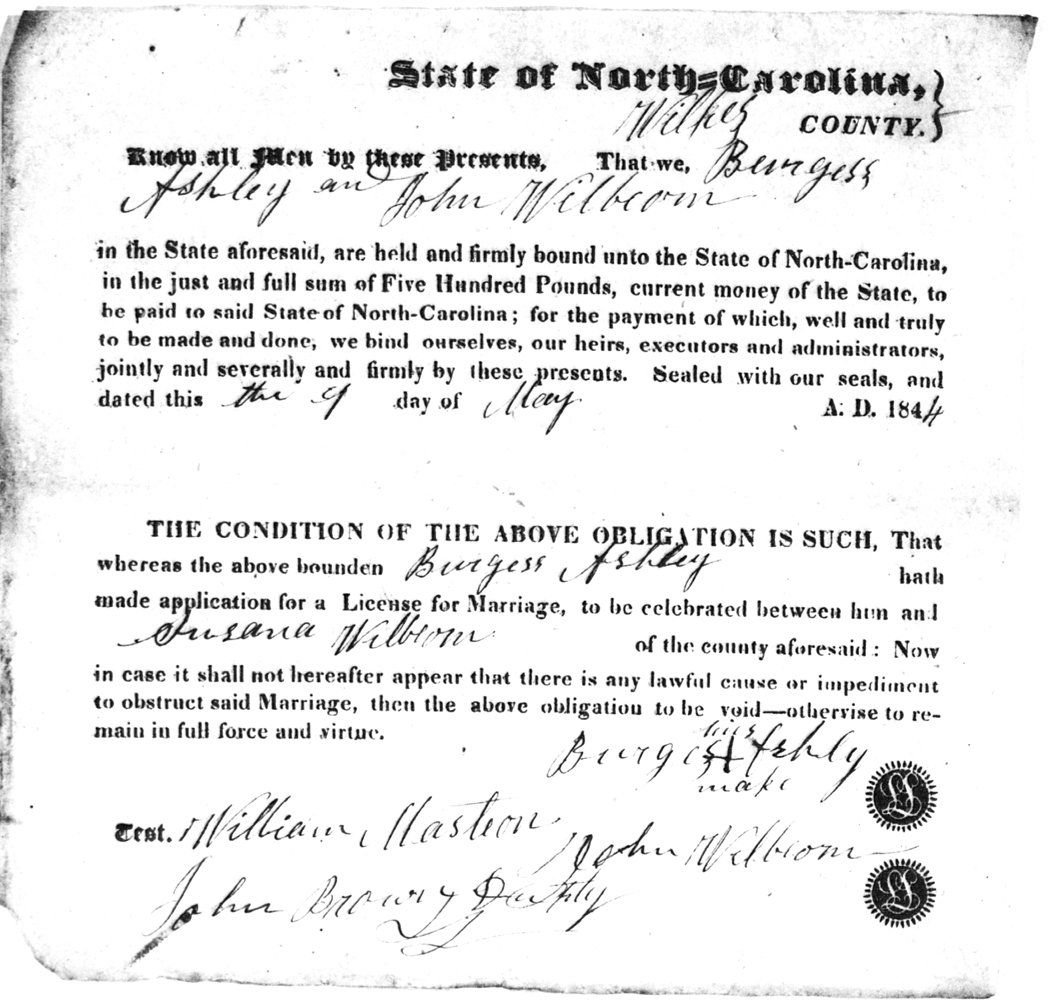 State of North-Carolina,
Wilkes COUNTY.
Know all Men by these Presents, That we, Burgess
Ashley and John Wilbcorn
in the State aforesaid, are held and firmly bound unto the State of North-Carolina,
in the just and full sum of Five Hundred Pounds, current money of the State, to
be paid to said State of North-Carolina; for the payment of which, well and truly
to be made and done, we bind ourselves, our heirs, executors and administrators,
jointly and severally and firmly by these presents. Sealed with our seals, and
dated this the 9 day of May A. D. 1844
THE CONDITION OF THE ABOVE OBLIGATION IS SUCH, That
whereas the above bounden Burgess Ashley hath
made application for a License for Marriage, to be celebrated between him and
Susana Wilbcorn of the county aforesaid: Now
in case it shall not hereafter appear that there is any lawful cause or impediment
to obstruct said Marriage, then the above obligation to be void—otherwise to re-
main in full force and virtue.
his
Burges + Ashly
mark
Test. William Masteon
John Wilbcorn
John Brown
LS
LS